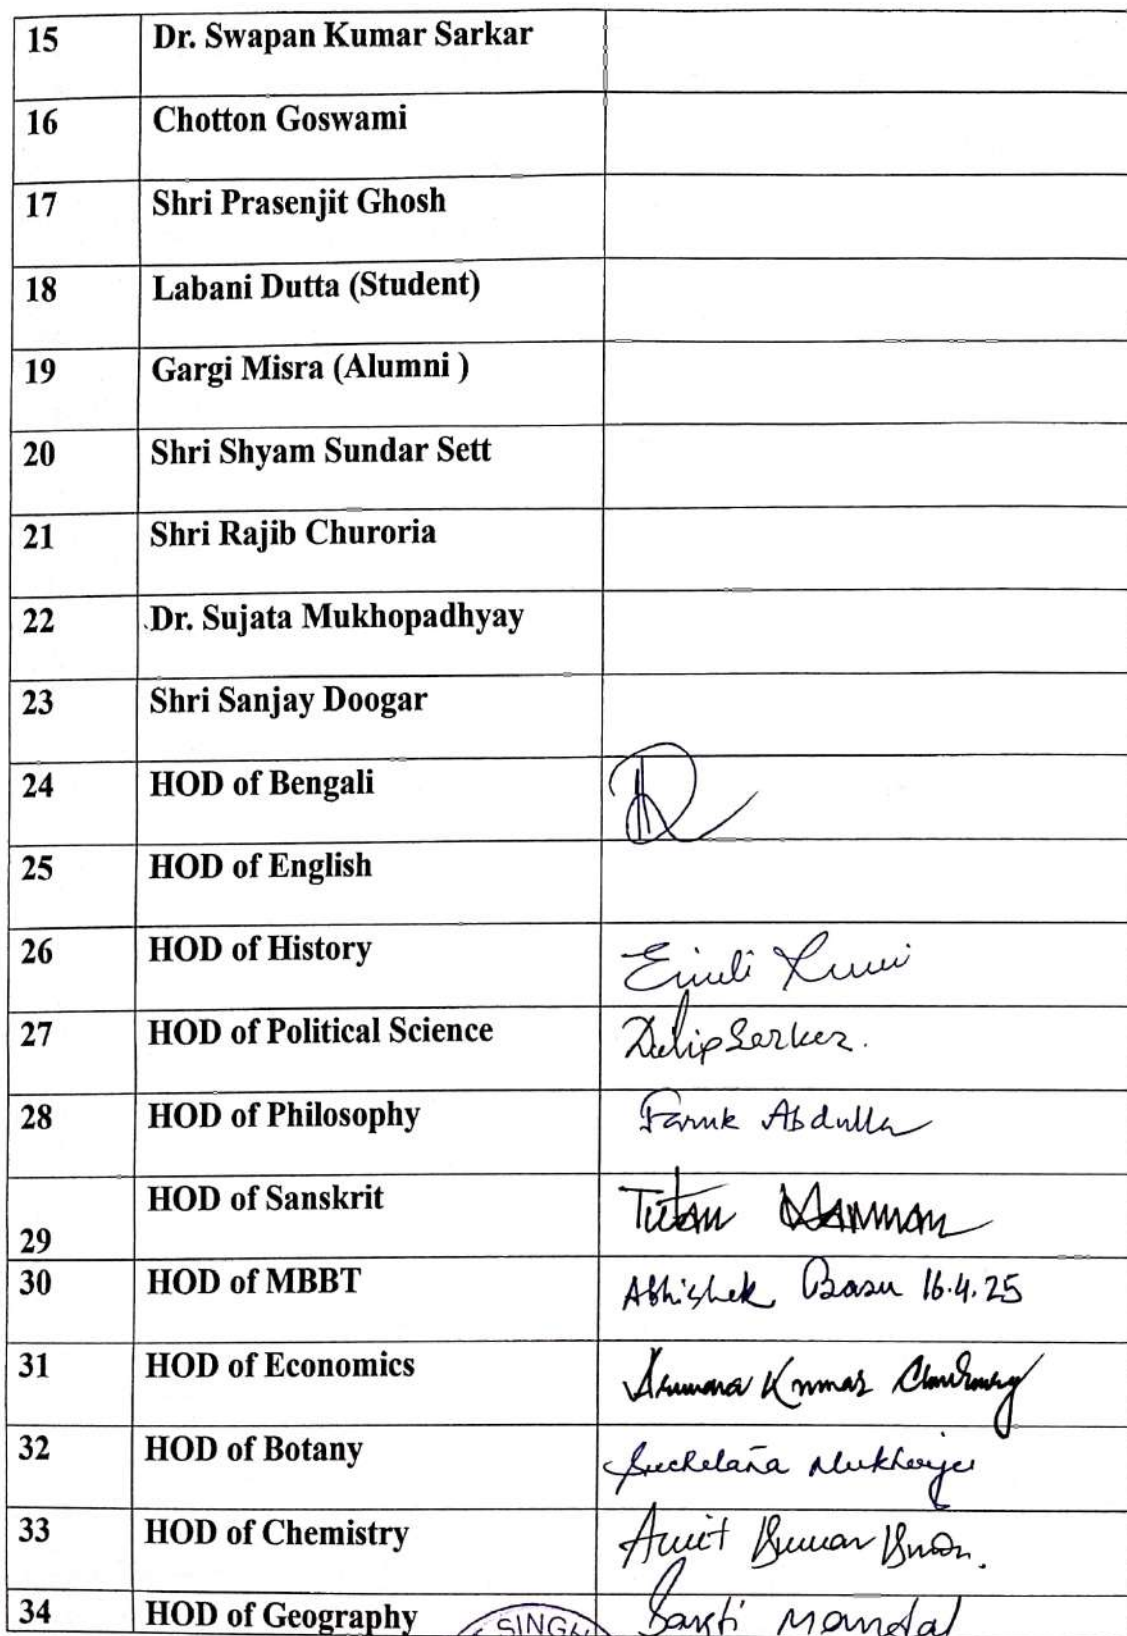 15 Dr. Swapan Kumar Sarkar
16 Chotton Goswami
17 Shri Prasenjit Ghosh
18 Labani Dutta (Student)
19 Gargi Misra (Alumni )
20 Shri Shyam Sundar Sett
21 Shri Rajib Churoria
22 Dr. Sujata Mukhopadhyay
23 Shri Sanjay Doogar
24 HOD of Bengali
25 HOD of English
26 HOD of History
27 HOD of Political Science Dilip Sarker.
28 HOD of Philosophy Faruk Abdulla
29 HOD of Sanskrit
30 HOD of MBBT Abhishek Basu 16.4.25
31 HOD of Economics Kumar
32 HOD of Botany Mukherjee
33 HOD of Chemistry Amit Kumar
34 HOD of Geography Mandal
SINGH